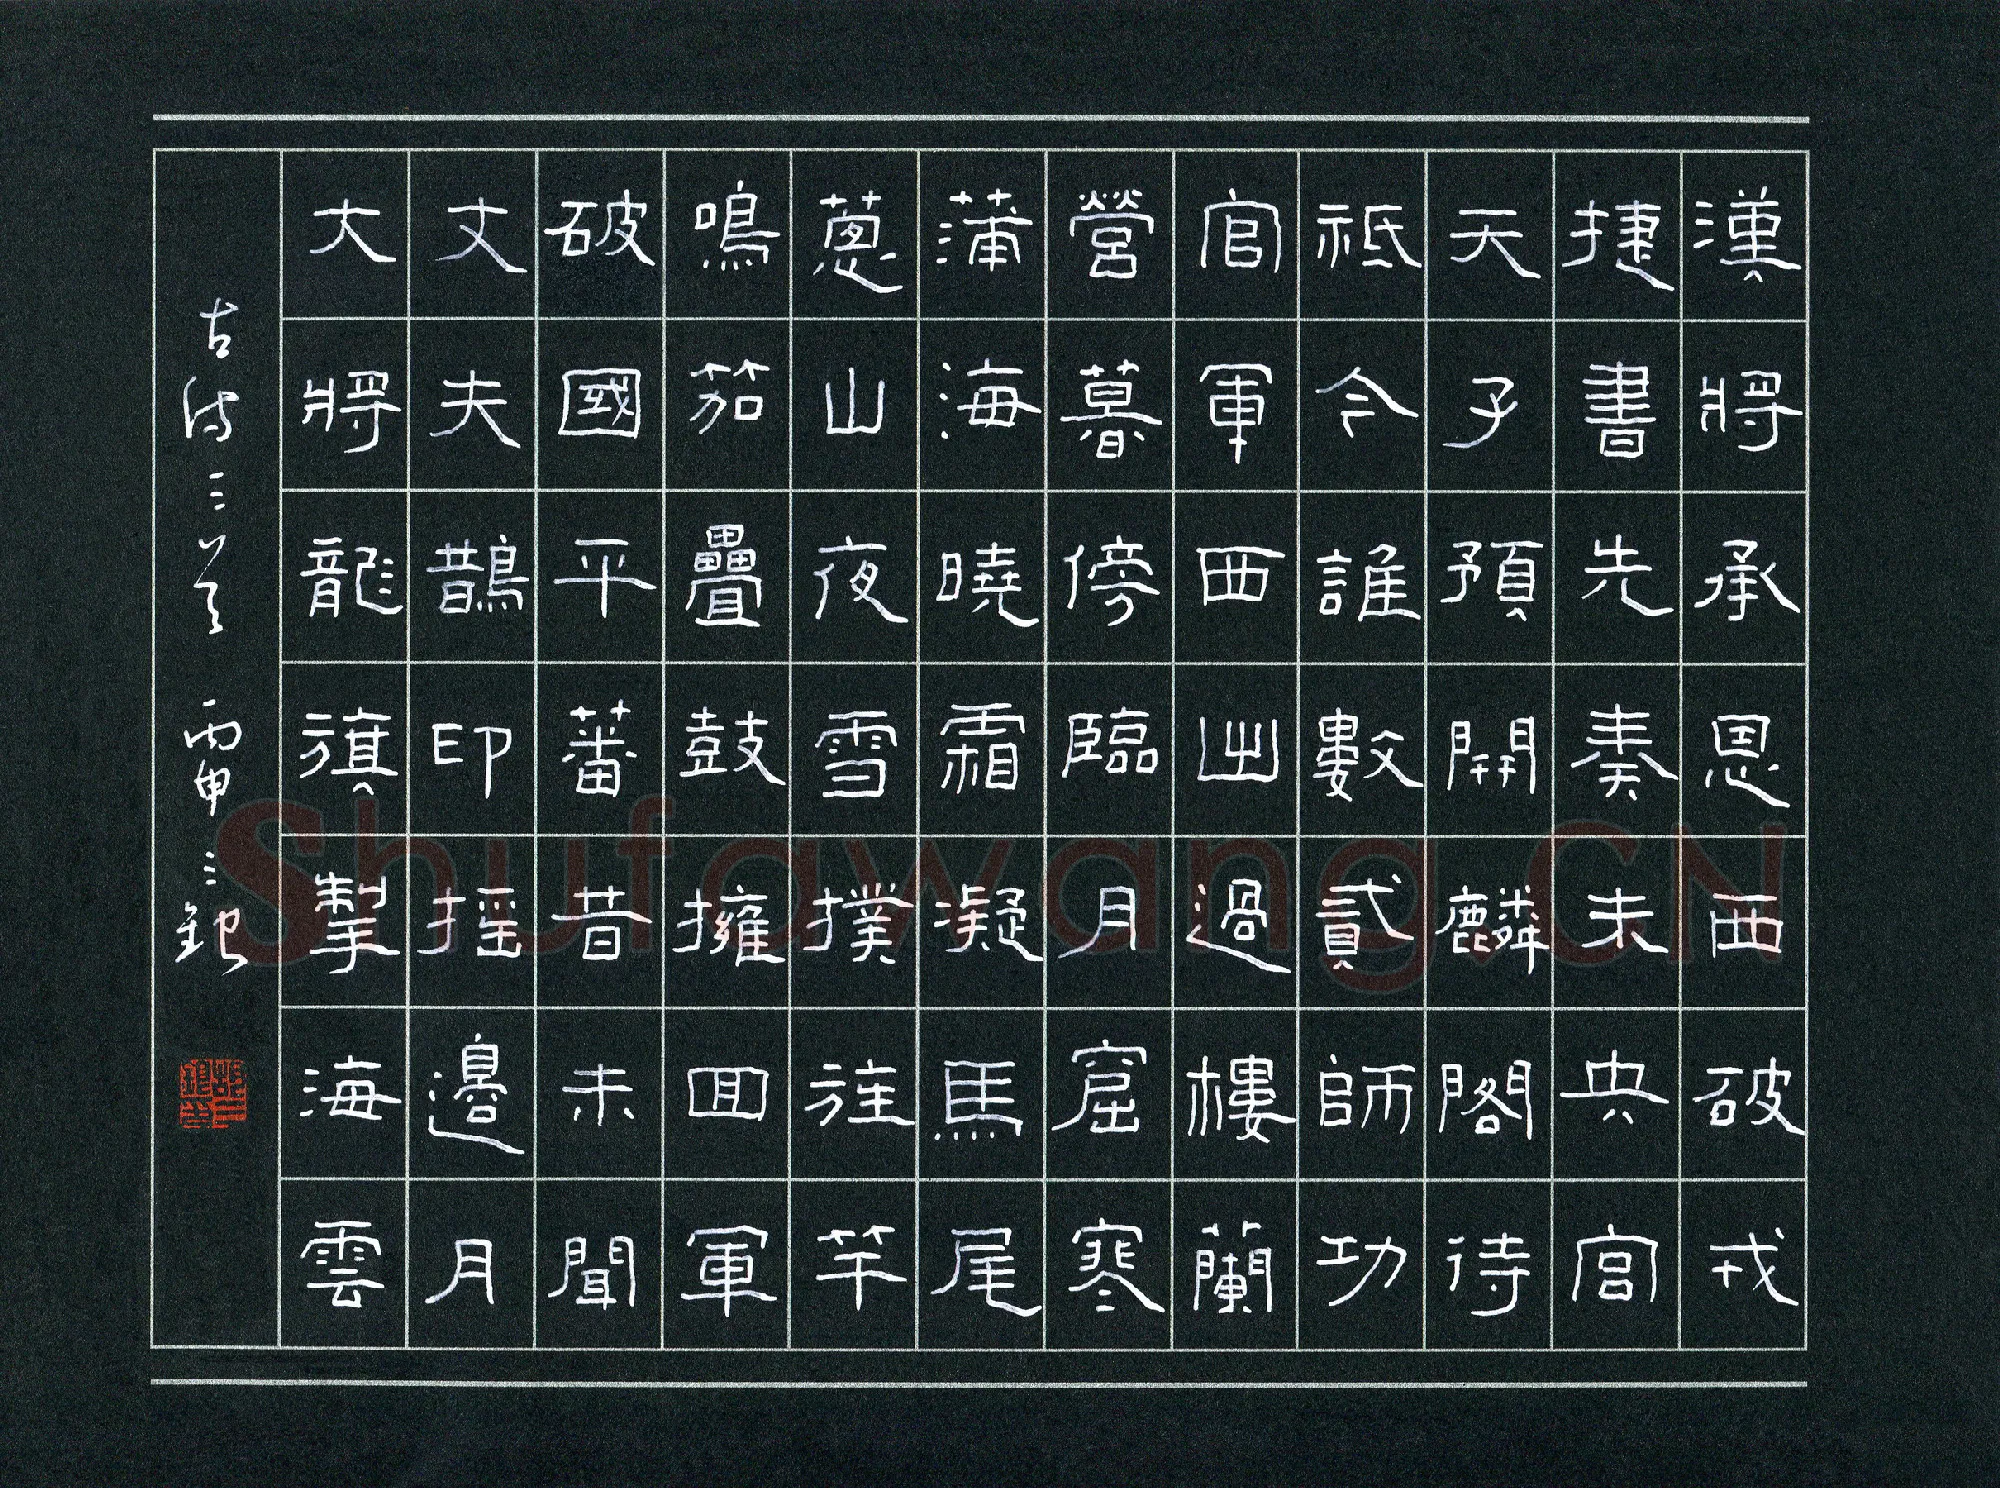 漢將承恩西破戎
捷書先奏未央宮
天子預開麟閣待
祇今誰數貳師功
官軍西出過樓蘭
營暮傍臨月窟寒
蒲海曉霜凝馬尾
蔥山夜雪撲旌竿
鳴笳疊鼓擁回軍
破國平蕃昔未聞
丈夫鵲印摇邊月
大將龍旗掣海雲
古詩三首 丙申三銀
Shufawang.CN